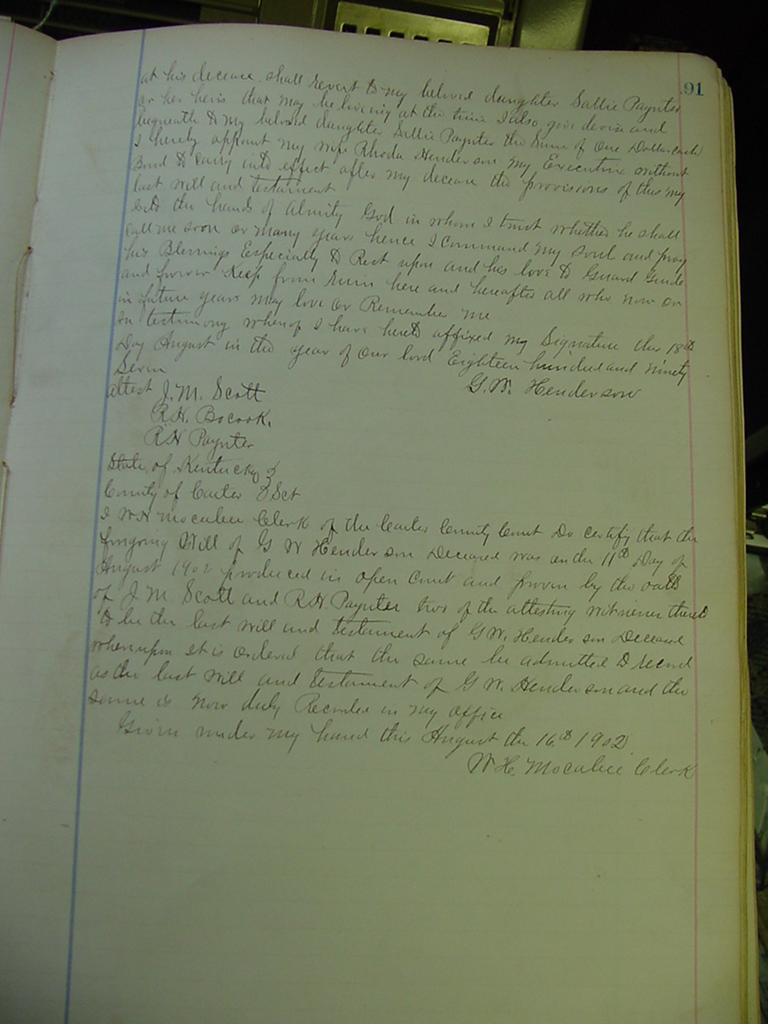 91
at his decease shall revert to my beloved daughter Sallie Paynter
or her heirs that may be living at the time I also give devise and
bequeath to my beloved daughter Sallie Paynter the Sum of One Dollar cash
I hereby appoint my wife Rhoda Henderson my Executrix without
Bond to carry into effect after my decease the provisions of this my
last will and testament
into the hands of Almity God in whom I trust whether he shall
call me soon or many years hence I command my soul and pray
his Blessings Especially to Rest upon and his love to Guard Guide
and forever keep from Ruin here and hereafter all who now or
in future years may love or Remember me
In testimony whereof I have hereto affixed my Signature this 18th
Day August in the year of Our lord Eighteen hundred and ninety
Seven
G. W. Henderson
attest J. M. Scott
R. H. Bocook.
R H Paynter
State of Kentucky
County of Carter Sct
I W H Mocabee Clerk of the Carter County Court Do certify that the
foregoing Will of G W Henderson Deceased was on the 11th Day of
August 1902 produced in open Court and proven by the oath
of J. M. Scott and R H Paynter two of the attesting witnesses thereto
to be the last will and testament of G. W. Henderson Deceased
whereupon it is ordered that the same be admitted to record
as the last will and testament of G W. Henderson and the
same is now duly Recorded in my office
Given under my hand this August the 16th 1902
W. H. Mocabee Clerk